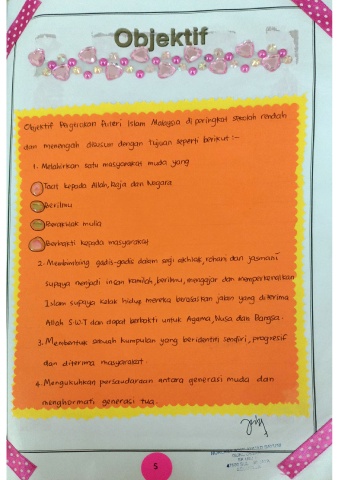 Objektif
Objektif Pergerakan Puteri Islam Malaysia di peringkat sekolah rendah
dan menengah disusun dengan tujuan seperti berikut :-
1. Melahirkan satu masyarakat muda yang
Taat kepada Allah, Raja dan Negara
Berilmu
Berakhlak mulia
Berbakti kepada masyarakat
2. Membimbing gadis-gadis dalam segi akhlak, rohani dan jasmani
supaya menjadi insan kamilah, berilmu, mengajar dan memperkenalkan
Islam supaya kelak hidup mereka berasaskan jalan yang diterima
Allah S.W.T dan dapat berbakti untuk Agama, Nusa dan Bangsa.
3. Membentuk sebuah kumpulan yang beridentiti sendiri, progresif
dan diterima masyarakat.
4. Mengukuhkan persaudaraan antara generasi muda dan
menghormati generasi tua.
5